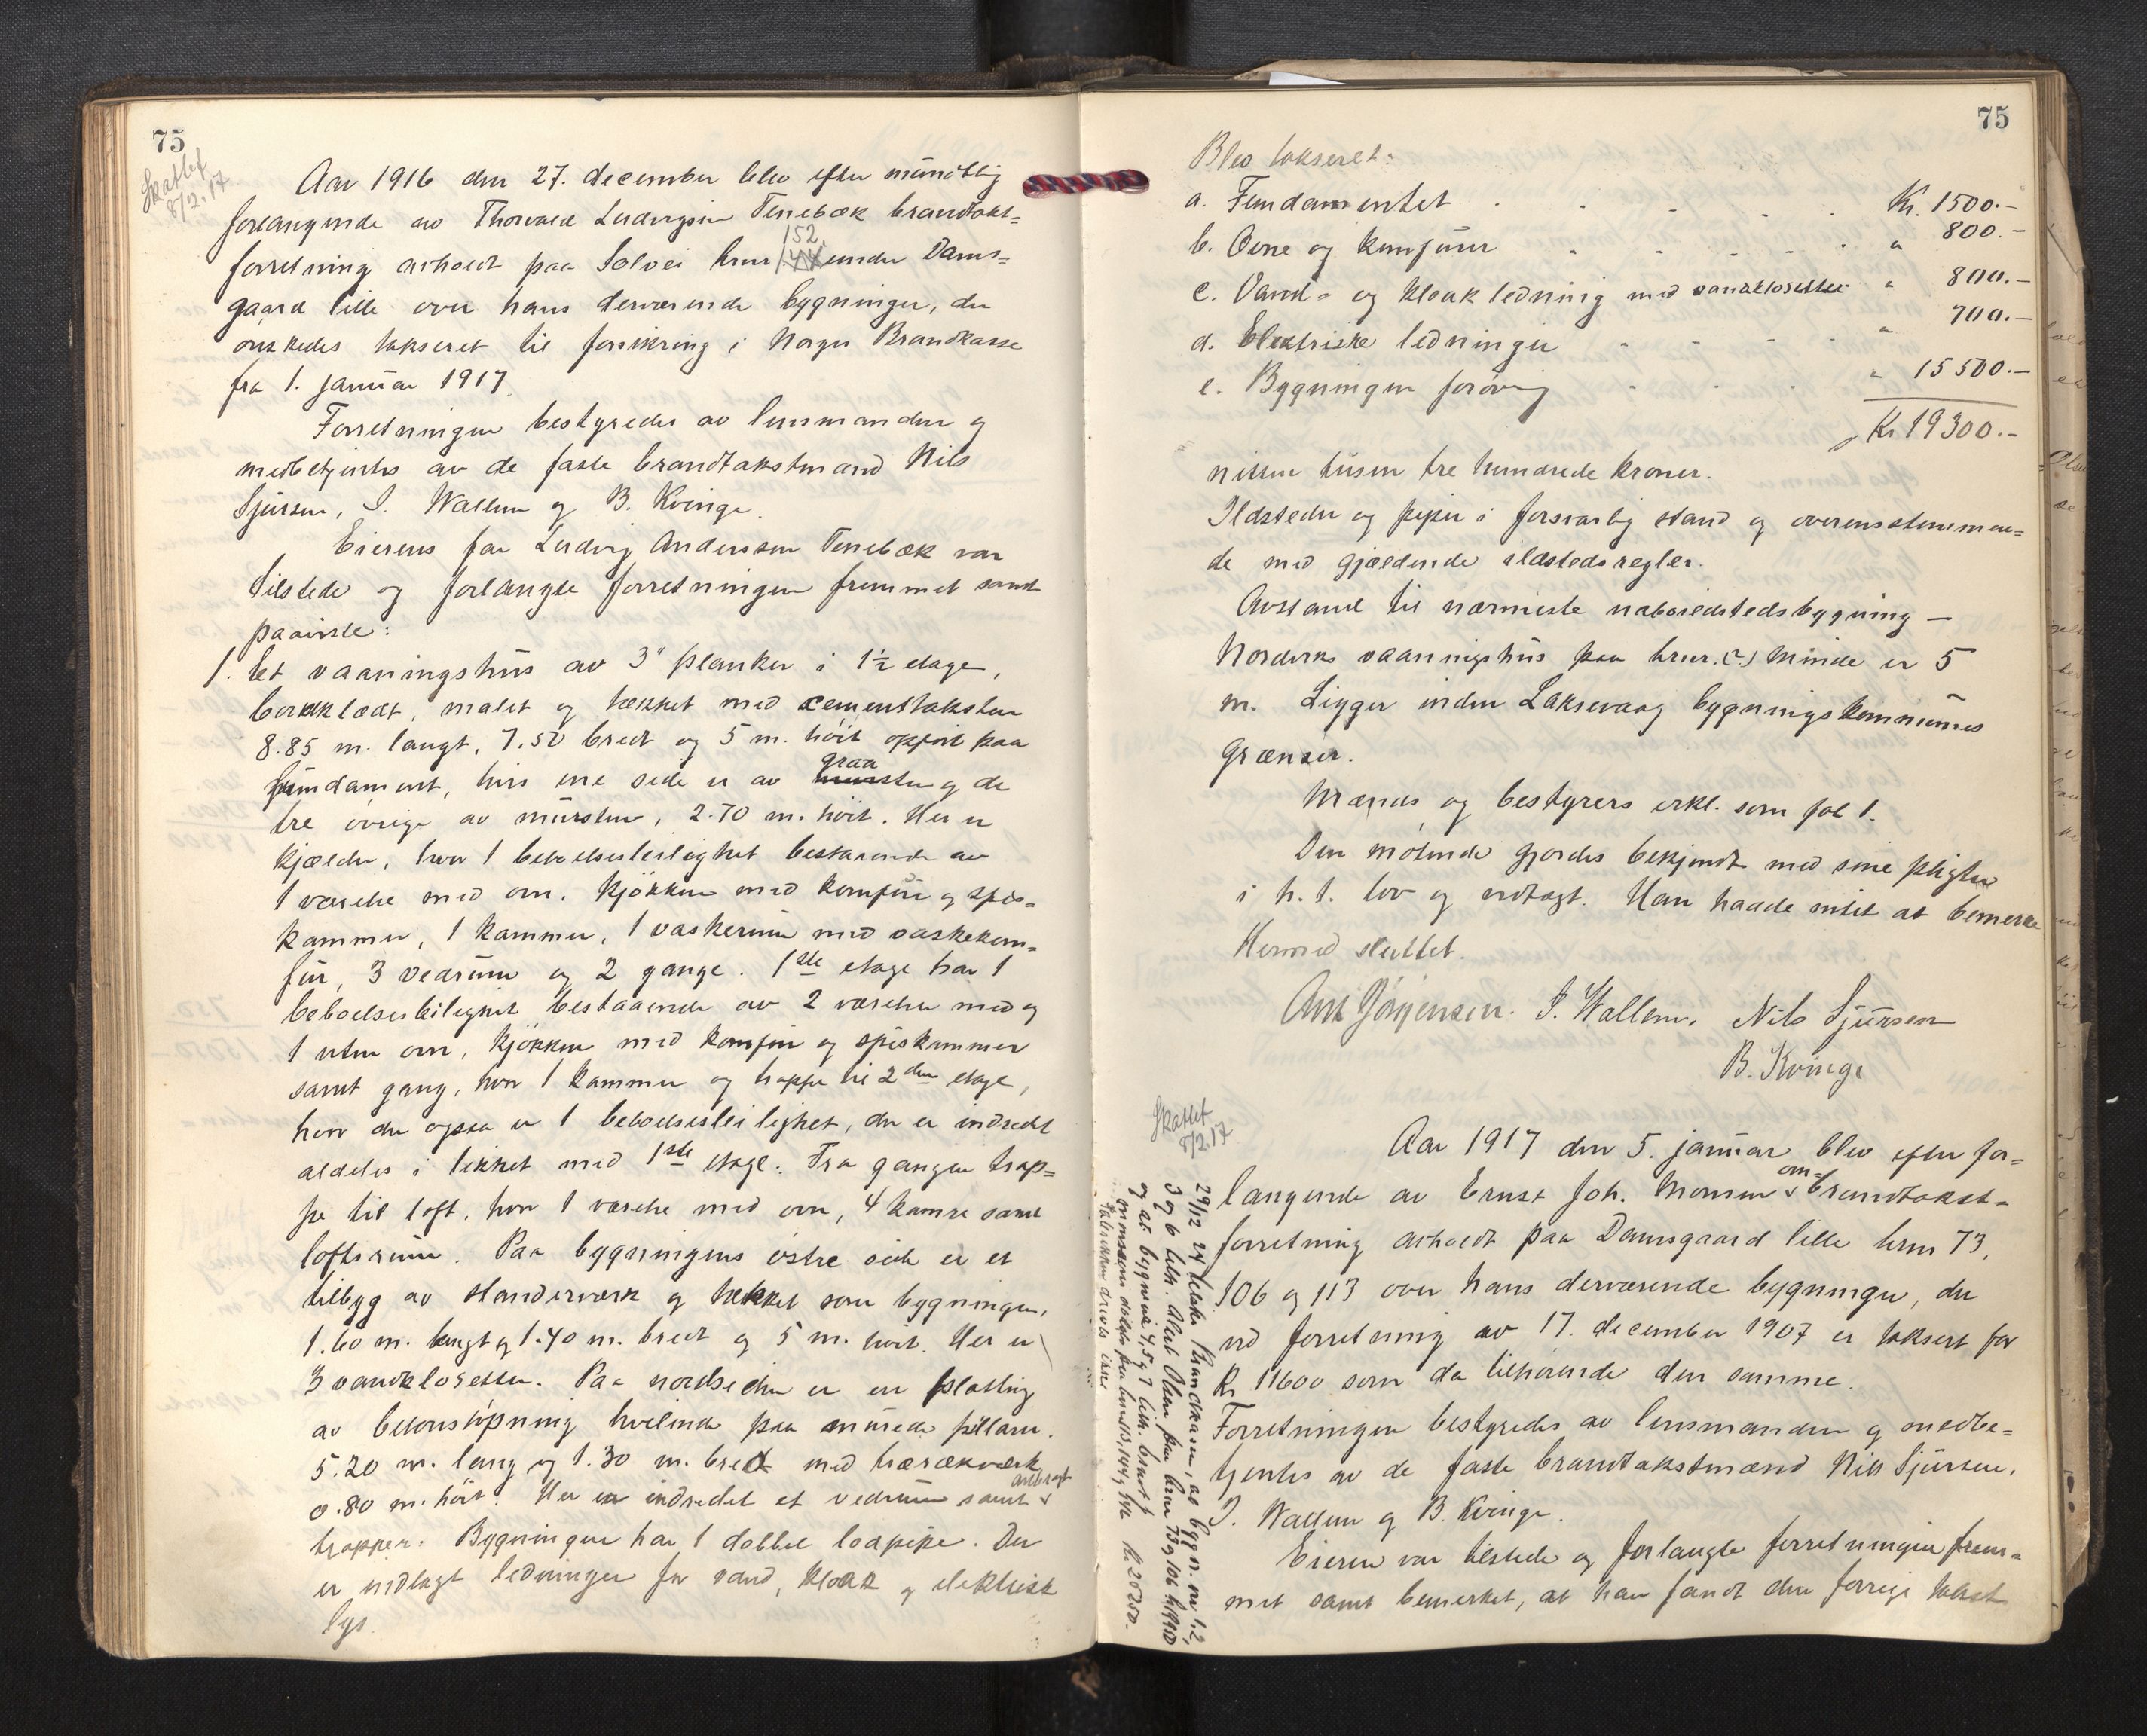 75
Skattet
8/2.17
Aar 1916 den 27. december blev efter mundtlig
forlangende av Thorvald Ludvigsen Tenebæk brandtakst=
forretning avholdt paa Solvei brnr 152 under Dams=
gaard lille over hans derværende bygninger, der
ønskedes takseret til forsikring i Norges Brandkasse
fra 1. januar 1917.
Forretningen bestyredes av lensmanden og
medbetjentes av de faste brandtakstmænd Nils
Sjursen, I. Wallem og B. Kvinge.
Eierens far Ludvig Andersen Tenebæk var
tilstede og forlangte forretningen fremmet samt
paaviste:
1. Et vaaningshus av 3" planker i 1½ etage,
bordklædt, malet og tækket med cementtaksten
8.85 m. langt, 7.50 bredt og 5 m. høit opført paa
fundament, hvis ene side er av graasten og de
tre øvrige av mursten, 2.70 m. høit. Her er
kjælder, hvor 1 beboelsesleilighet bestaaende av
1 værelse med ovn, kjøkken med komfur og spis=
kammer, 1 kammer, 1 vaskerum med vaskekom=
fur, 3 vedrum og 2 gange. 1ste etage har 1
beboelsesleilighet bestaaende av 2 værelser med og
1 uten ovn, kjøkken med komfur og spiskammer
samt gang, hvor 1 kammer og trappe til 2den etage,
hvor der ogsaa er 1 beboelsesleilighet, der er indredet
aldeles i likhet med 1ste etage. Fra gangen trap=
pe til loft, hvor 1 værelse med ovn, 4 kamre samt
loftsrum. Paa bygningens østre side er et
tilbyg av standerværk og tækket som bygningen,
1.60 m. langt og 1.40 m. bredt og 5 m. høit. Her er
3 vandklosetter. Paa nordsiden er en platting
av betonstøpning hvilende paa murede pillarer.
5.20 m. lang og 1.30 m. bred med trærækværk
0.80 m. høit. Her er indredet et vedrum samt anbragt
trapper. Bygningen har 1 dobbel lodpipe. Der
er nedlagt ledninger for vand, kloak og elektrisk
lys.
75
Blev takseret:
a. Fundamentet Kr. 1500.-
b. Ovne og komfurer " 800.-
c. Vand- og kloakledning med vandklosetter " 800.-
d. Elektriske ledninger " 700.-
e. Bygningen forøvrig " 15500.-
Kr 19300.-
nitten tusen tre hundrede kroner.
Ildsteder og piper i forsvarlig stand og overensstemmen=
de med gjældende ildstedsregler.
Avstand til nærmeste naboildstedsbygning —
Norderks vaaningshus paa brnr. (?) Minde er 5
m. Ligger inden Laksevaag bygningskommunes
grænser.
Mænds og bestyrers erkl. som fol 1.
Den møtende gjordes bekjendt med sine pligter
i h. t. lov og vedtægt. Han hadde intet at bemerke
Hermed sluttet.
Ant Jørgensen. I. Wallem. Nils Sjursen
B. Kvinge
Skattet
8/2.17
Aar 1917 den 5. januar blev efter for=
langende av Ernst Joh. Monsen om=brandtakst=
forretning avholdt paa Damsgaard lille brnr 73,
106 og 113 over hans derværende bygninger, der
ved forretning av 17. december 1907 er taksert for
Kr 11600 som da tilhørende den samme.
Forretningen bestyredes av lensmanden og medbe=
tjentes av de faste brandtakstmænd Nils Sjursen,
I. Wallem og B. Kvinge.
Eieren var tilstede og forlangte forretningen frem=
met samt bemerket, at han fandt den forrige takst
29/12 24 Brandkassen, at bygn. nr 1, 2,
3 og 6 tilh. Olsen paa brnr 73 og 106
og at bygn nr 4, 5 og 7 tilh.
kr 20250.-